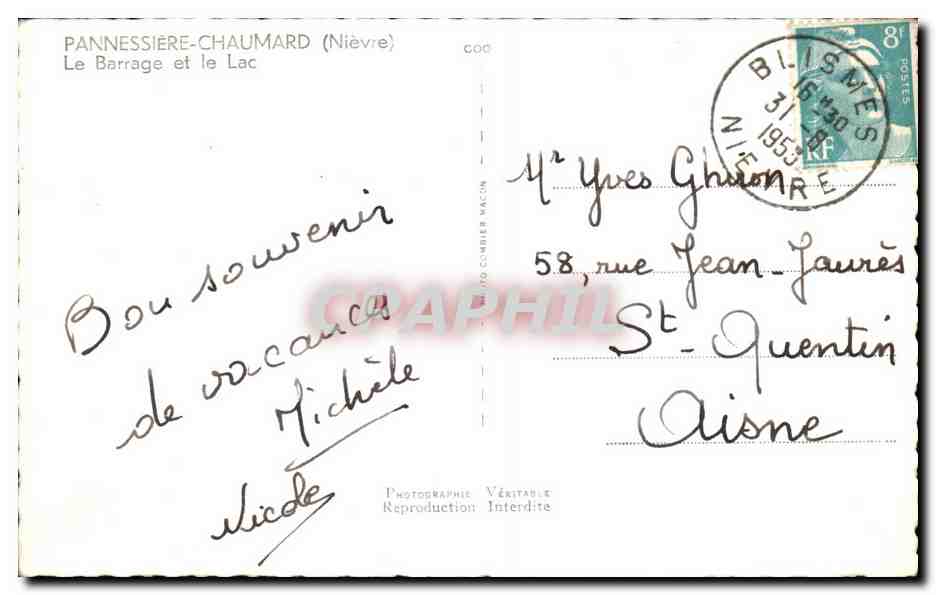 PANNESSIÈRE-CHAUMARD (Nièvre)
Le Barrage et le Lac
BLISMES
16 H 30
31 -8
1953
NIEVRE
8f
POSTES
RF
Bon souvenir
de vacances
Michèle
Nicole
PHOTO COMBIER MACON
Mr Yves
58, rue Jean-Jaurès
St-Quentin
Aisne
PHOTOGRAPHIE VÉRITABLE
Reproduction Interdite
CPAPHIL